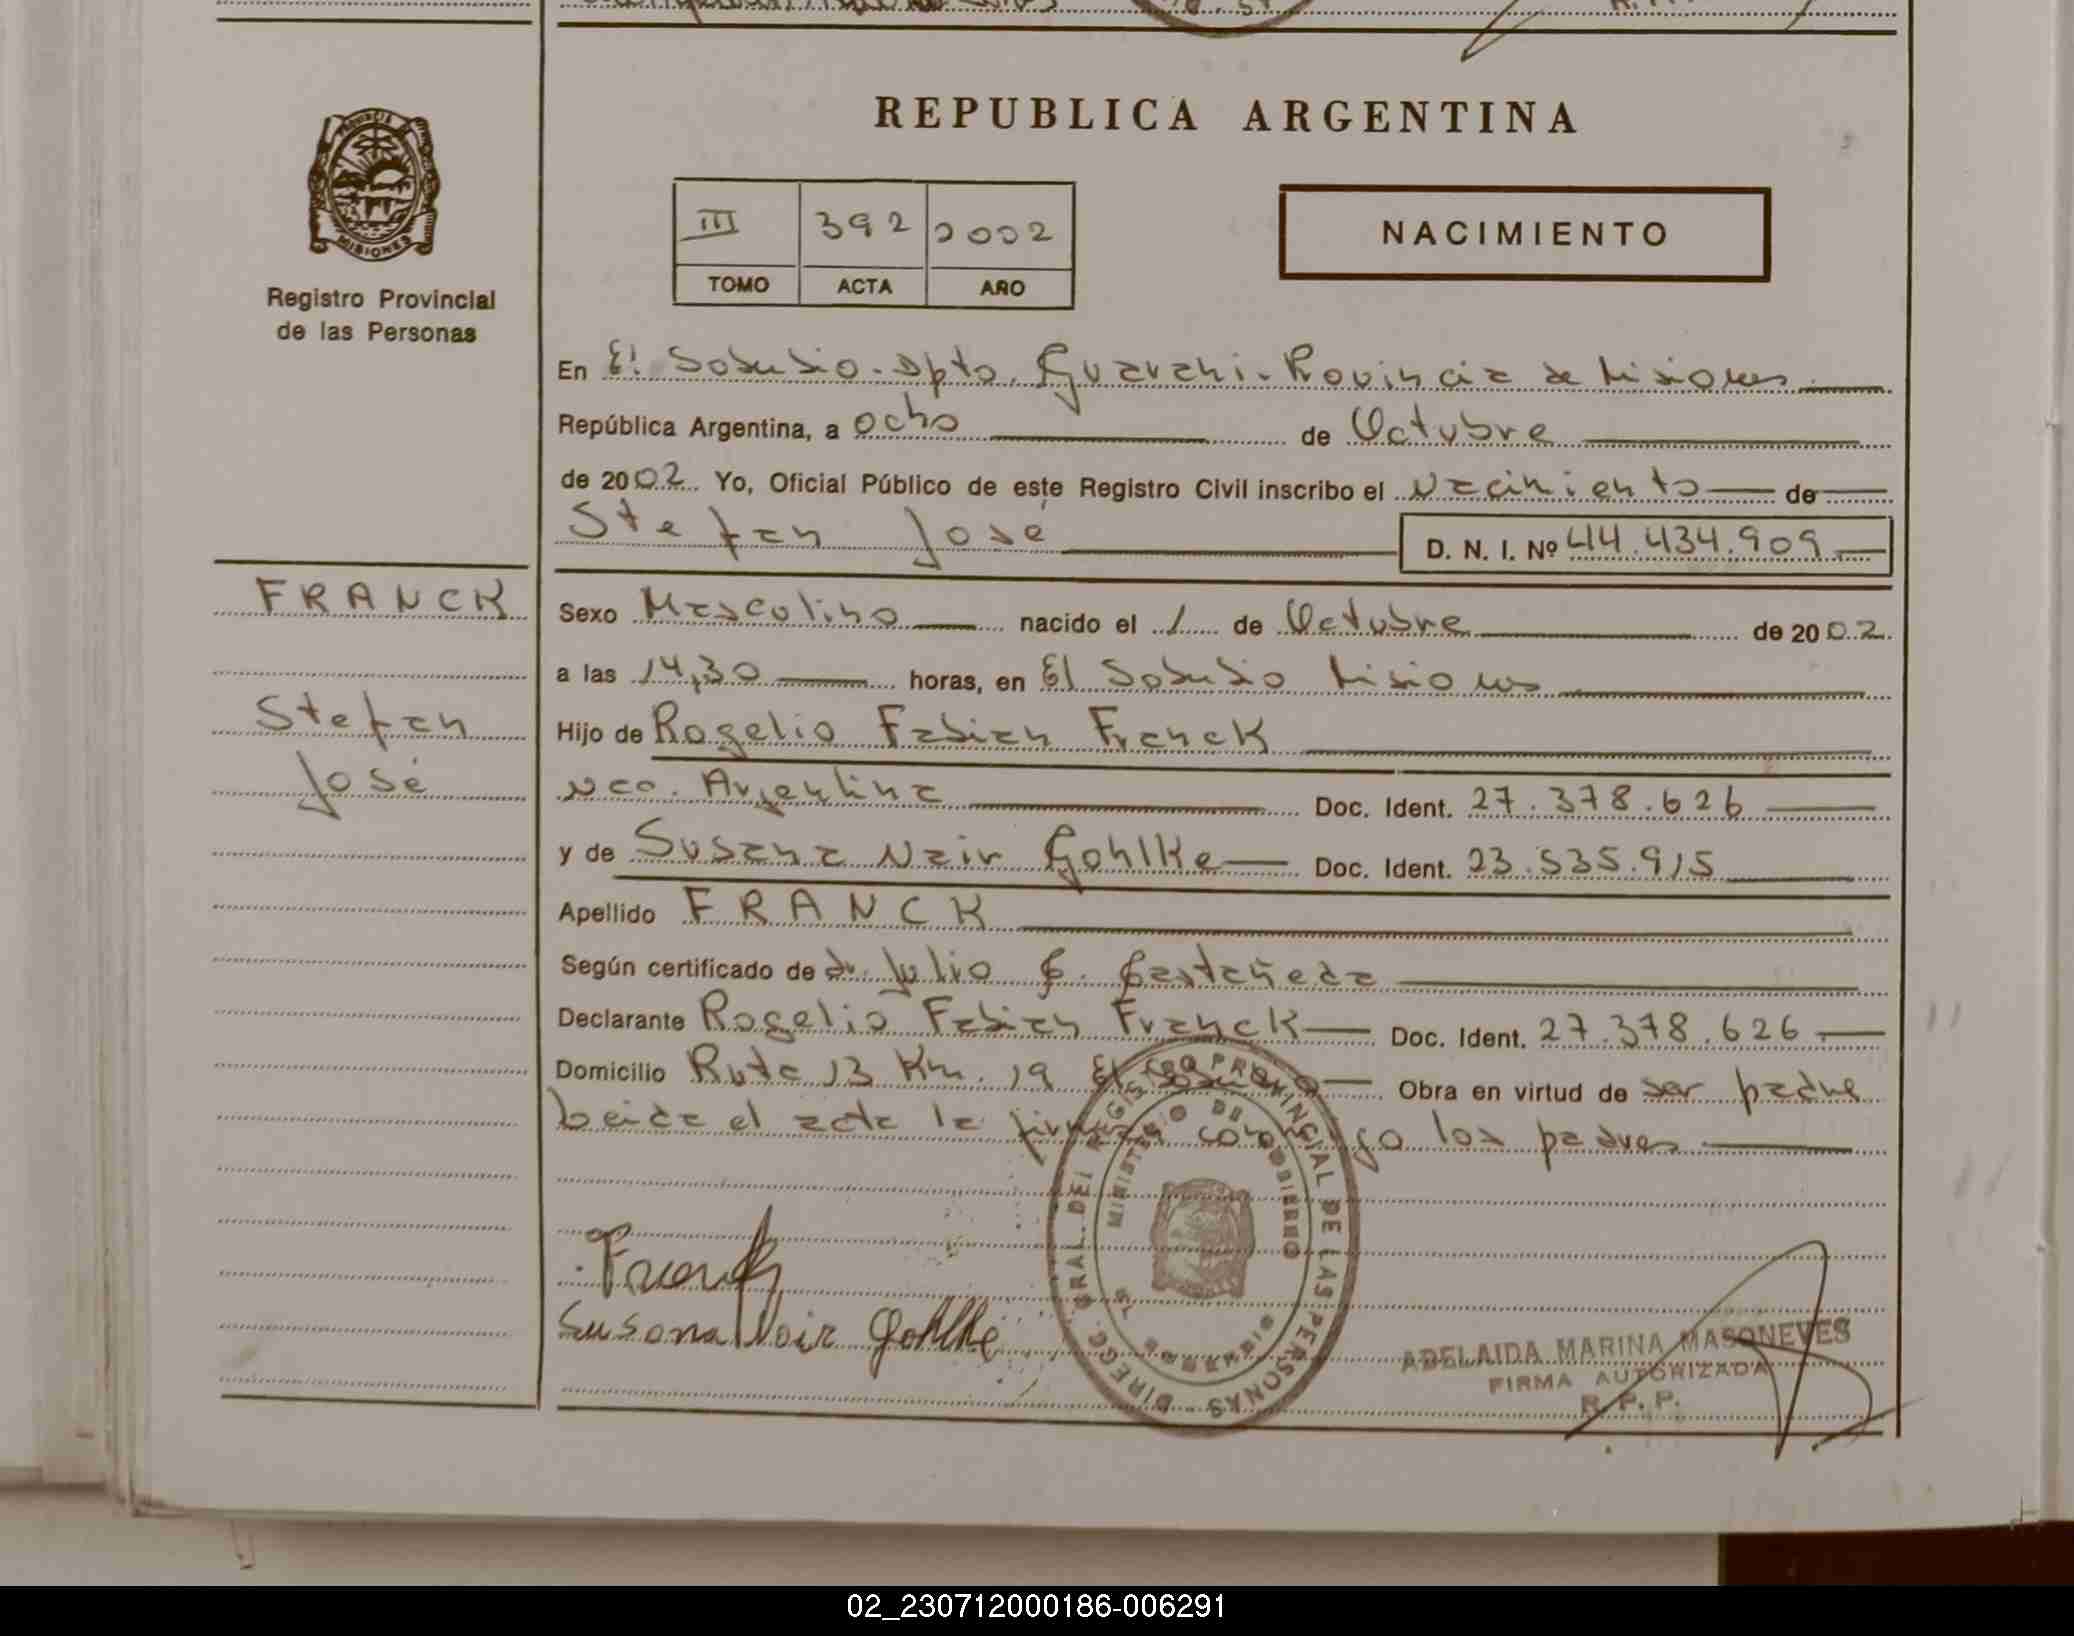 REPUBLICA ARGENTINA
PROVINCIA DE
MISIONES
III 392 2002
TOMO ACTA AÑO
NACIMIENTO
Registro Provincial
de las Personas
En El Soberbio. Dpto. Guarani. Provincia de Misiones
República Argentina, a ocho de Octubre
de 2002. Yo, Oficial Público de este Registro Civil inscribo el Nacimiento de
Stefan José D. N. I. Nº 44.434.909
FRANCK
Stefan
José
Sexo Masculino nacido el 1 de Octubre de 2002
a las 14,30 horas, en El Soberbio Misiones
Hijo de Rogelio Fabian Franck
Nco. Argentina Doc. Ident. 27.378.626
y de Susana Nair Gohlke Doc. Ident. 23.535.915
Apellido FRANCK
Según certificado de Dr. Julio G. Gastañeda
Declarante Rogelio Fabian Franck Doc. Ident. 27.378.626
Domicilio Ruta 13 Km. 19 El Soberbio Obra en virtud de ser padre
Leida el acta la firman conmigo los padres
Franck
Susana Nair Gohlke
DIRECC. GRAL. DEL REGISTRO PROVINCIAL DE LAS PERSONAS
MINISTERIO DE GOBIERNO
MISIONES
ADELAIDA MARINA MASONEVES
FIRMA AUTORIZADA
R. P. P.
02_230712000186-006291